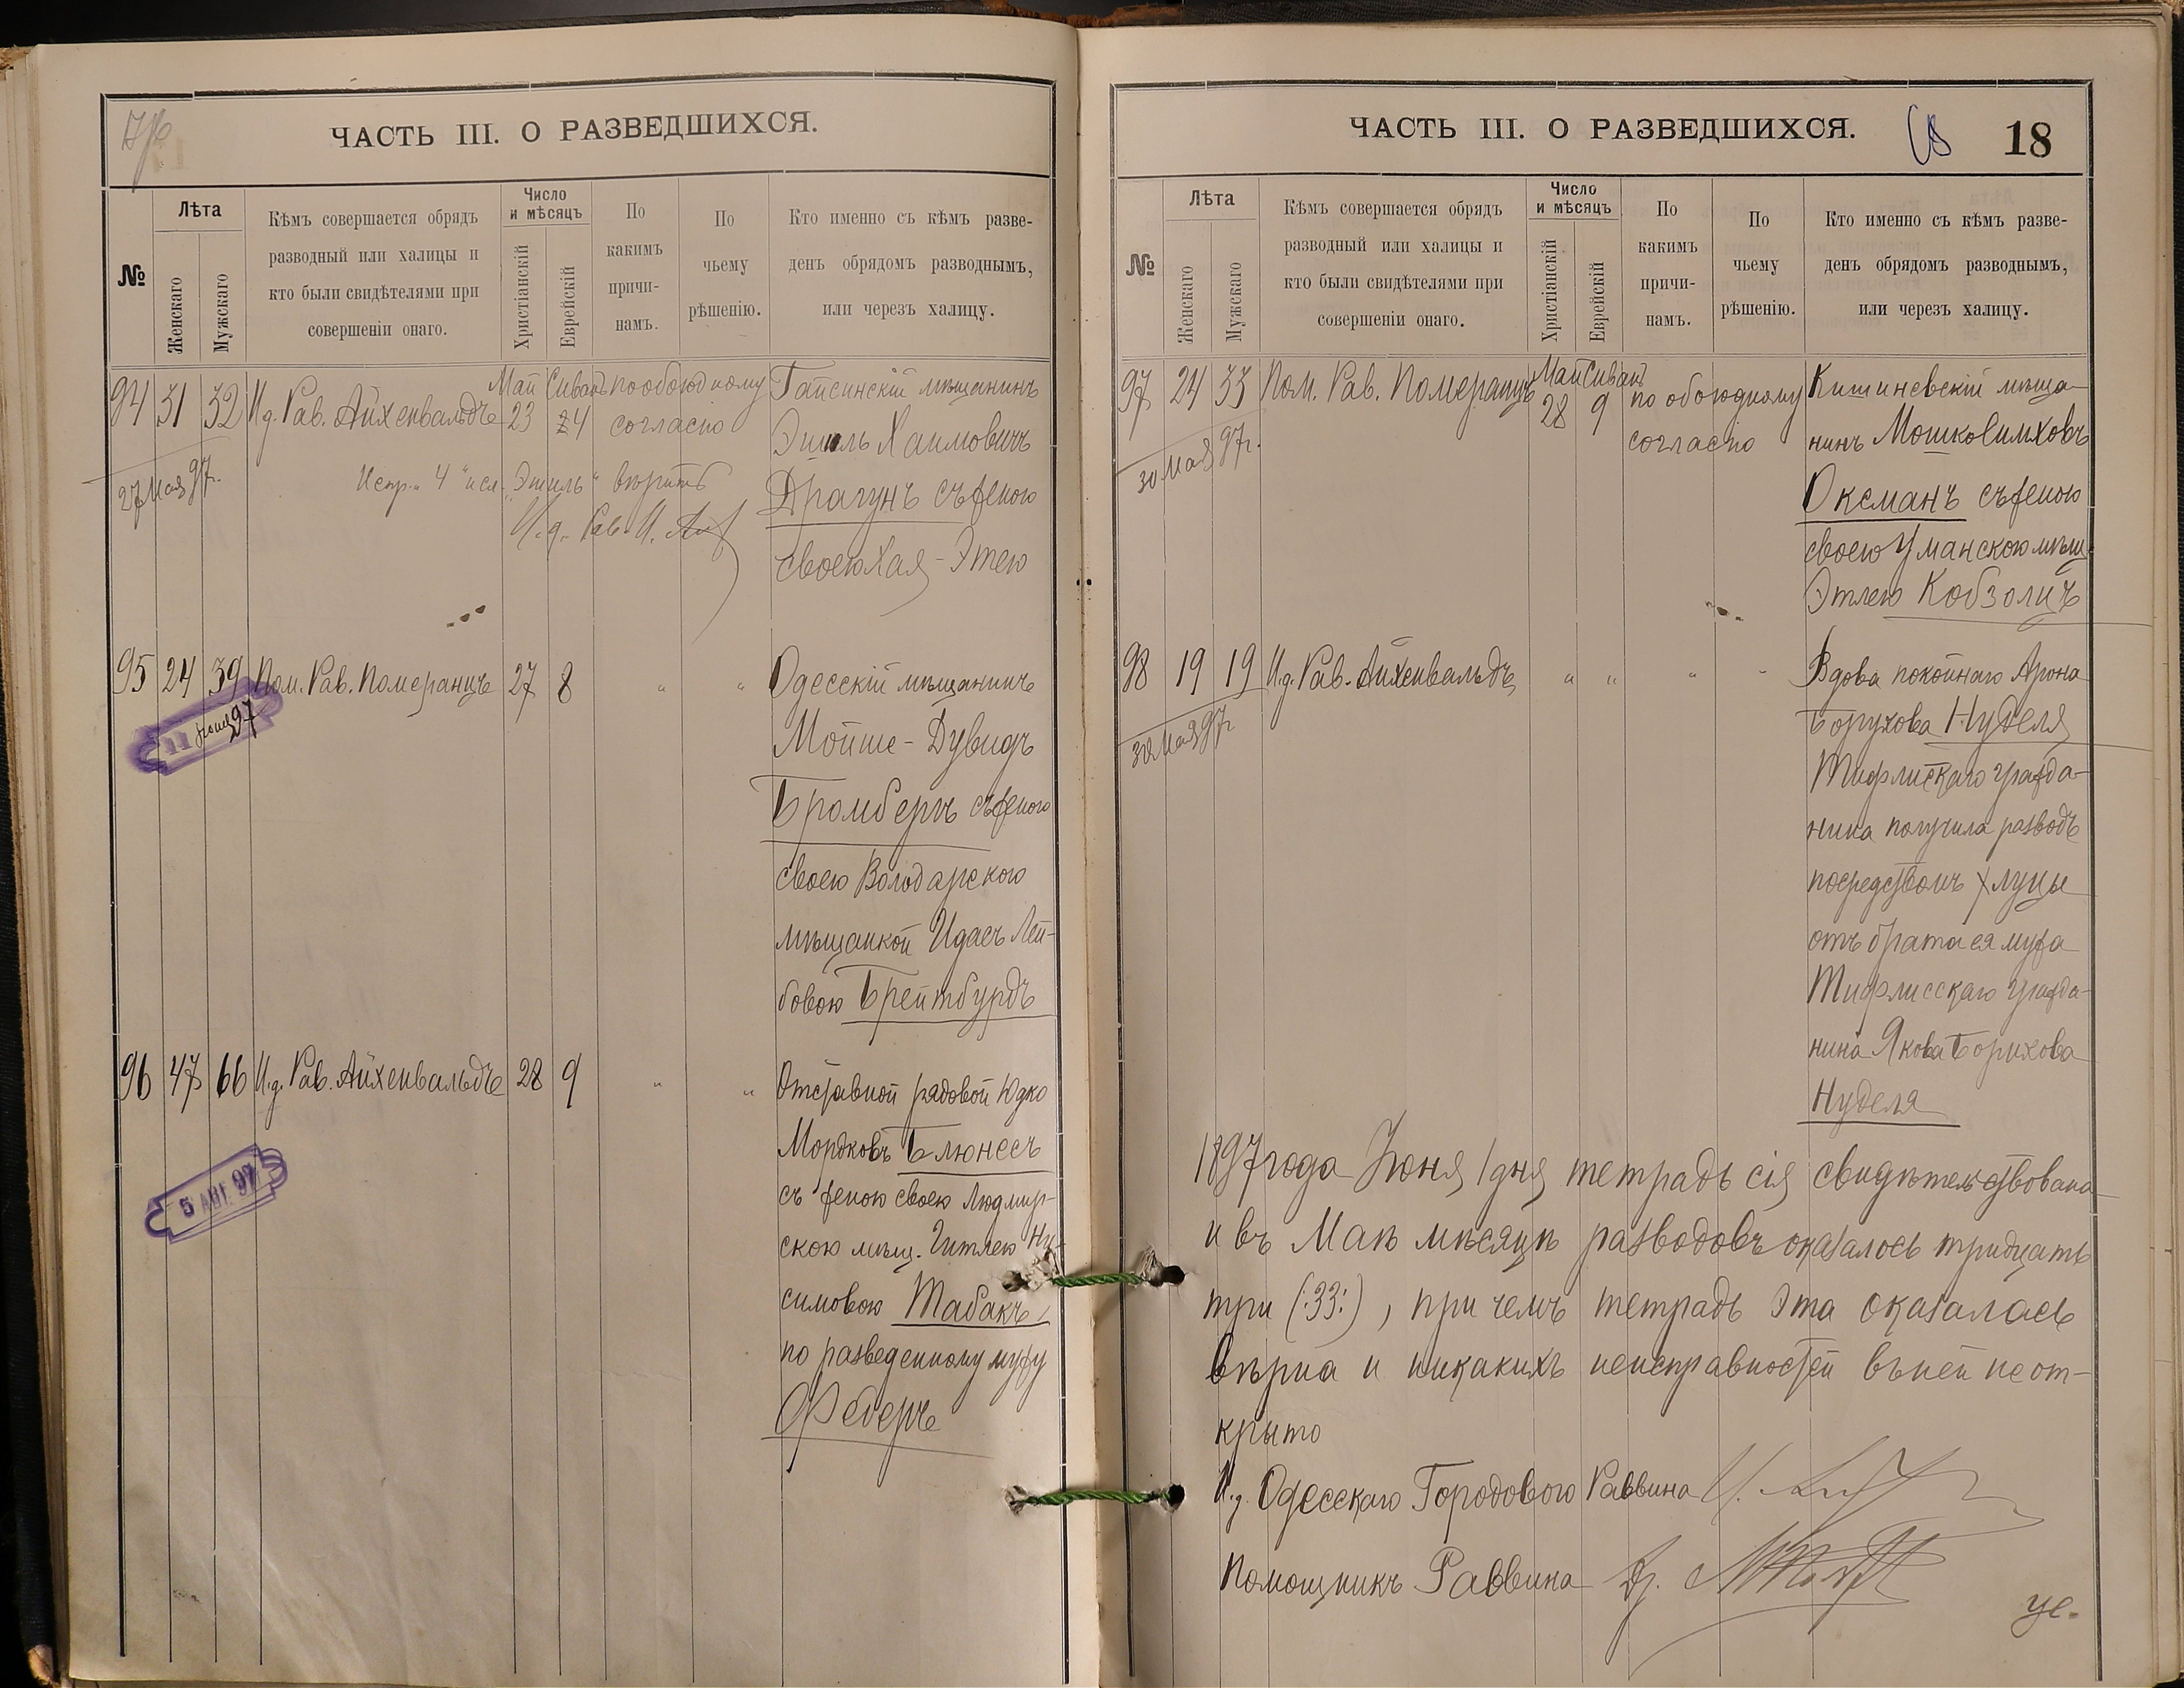 ЧАСТЬ III. О РАЗВЕДШИХСЯ.
№
Лѣта
Женскаго
Мужскаго
Кѣмъ совершается обрядъ
разводный или халицы и
кто были свидѣтелями при
совершеніи онаго.
Число
и мѣсяцъ
Христіанскій
Еврейскій
По
какимъ
причи-
намъ.
По
чьему
рѣшенію.
Кто именно съ кѣмъ разве-
денъ обрядомъ разводнымъ,
или черезъ халицу.
94 31 32 И.д. Рав. Айхенвальдъ Май 23 Сиванъ 4 по обоюдному
согласію
Гайсинскій мѣщанинъ
Эмиль Хаимовичъ
Драгунъ съ женою
своею Хая-Этею
27 Мая 97 г.
Испр. "4" и сл. "Эмиль" вѣрить
И.д. Рав. И.
95 24 39 Пом. Рав. Померанцъ 27 8 " "
Одесскій мѣщанинъ
Мойше-Дувидъ
Бромбергъ съ женою
своею Володарскою
мѣщанкой Идаеъ Лей-
бовою Брейтбурдъ
11 Іюня 97
96 47 66 И.д. Рав. Айхенвальдъ 28 9 " "
Отставной рядовой Юдко
Мордковъ Блюнесъ
съ женою своею Людмир-
скою мѣщ. Гитлею Ни-
симовою Табакъ,
по разведенному мужу
Федеръ
5 АВГ. 97
ЧАСТЬ III. О РАЗВЕДШИХСЯ.
18
18
№
Лѣта
Женскаго
Мужскаго
Кѣмъ совершается обрядъ
разводный или халицы и
кто были свидѣтелями при
совершеніи онаго.
Число
и мѣсяцъ
Христіанскій
Еврейскій
По
какимъ
причи-
намъ.
По
чьему
рѣшенію.
Кто именно съ кѣмъ разве-
денъ обрядомъ разводнымъ,
или черезъ халицу.
97 24 33 Пом. Рав. Померанцъ Май 28 Сиванъ 9 по обоюдному
согласію
Кишиневскій мѣща-
нинъ Мошко Симховъ
Оксманъ съ женою
своею Уманскою мѣщ.
Этлею Кобзолицъ
30 Мая 97 г.
98 19 19 И.д. Рав. Айхенвальдъ " " " "
Вдова покойнаго Арона
Борухова Нуделя
Тифлискаго гражда-
нина получила разводъ
посредствомъ хлуцы
отъ брата ея мужа
Тифлисскаго гражда-
нина Якова Борухова
Нуделя
30 Мая 97 г.
1897 года Іюня 1 дня тетрадь сія свидѣтельствована
и въ Маѣ мѣсяцѣ разводовъ оказалось тридцать
три (:33:), при чемъ тетрадь эта оказалась
вѣрна и никакихъ неисправностей въ ней не от-
крыто
И.д. Одесскаго Городового Раввина И.
Помощникъ Раввина Др.